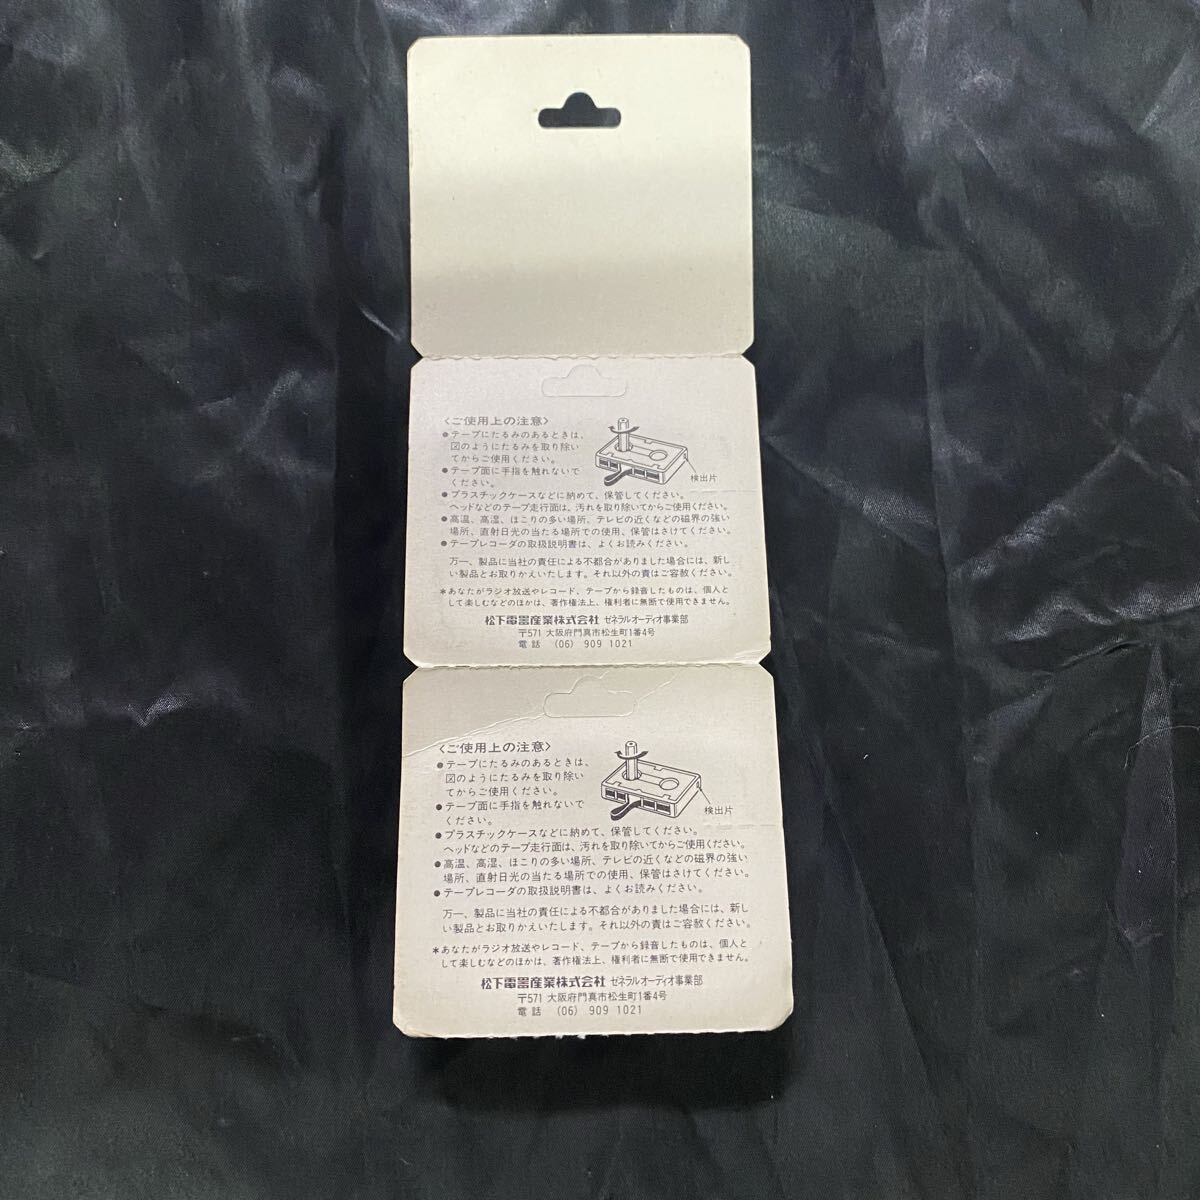 〈ご使用上の注意〉
●テープにたるみのあるときは、
図のようにたるみを取り除い
てからご使用ください。
●テープ面に手指を触れないで
ください。
検出片
●プラスチックケースなどに納めて、保管してください。
ヘッドなどのテープ走行面は、汚れを取り除いてからご使用ください。
●高温、高湿、ほこりの多い場所、テレビの近くなどの磁界の強い
場所、直射日光の当たる場所での使用、保管はさけてください。
●テープレコーダの取扱説明書は、よくお読みください。
万一、製品に当社の責任による不都合がありました場合には、新し
い製品とお取りかえいたします。それ以外の責はご容赦ください。
＊あなたがラジオ放送やレコード、テープから録音したものは、個人と
して楽しむなどのほかは、著作権法上、権利者に無断で使用できません。
松下電器産業株式会社 ゼネラルオーディオ事業部
〒571 大阪府門真市松生町1番4号
電話 (06) 909 1021
〈ご使用上の注意〉
●テープにたるみのあるときは、
図のようにたるみを取り除い
てからご使用ください。
●テープ面に手指を触れないで
ください。
検出片
●プラスチックケースなどに納めて、保管してください。
ヘッドなどのテープ走行面は、汚れを取り除いてからご使用ください。
●高温、高湿、ほこりの多い場所、テレビの近くなどの磁界の強い
場所、直射日光の当たる場所での使用、保管はさけてください。
●テープレコーダの取扱説明書は、よくお読みください。
万一、製品に当社の責任による不都合がありました場合には、新し
い製品とお取りかえいたします。それ以外の責はご容赦ください。
＊あなたがラジオ放送やレコード、テープから録音したものは、個人と
して楽しむなどのほかは、著作権法上、権利者に無断で使用できません。
松下電器産業株式会社 ゼネラルオーディオ事業部
〒571 大阪府門真市松生町1番4号
電話 (06) 909 1021